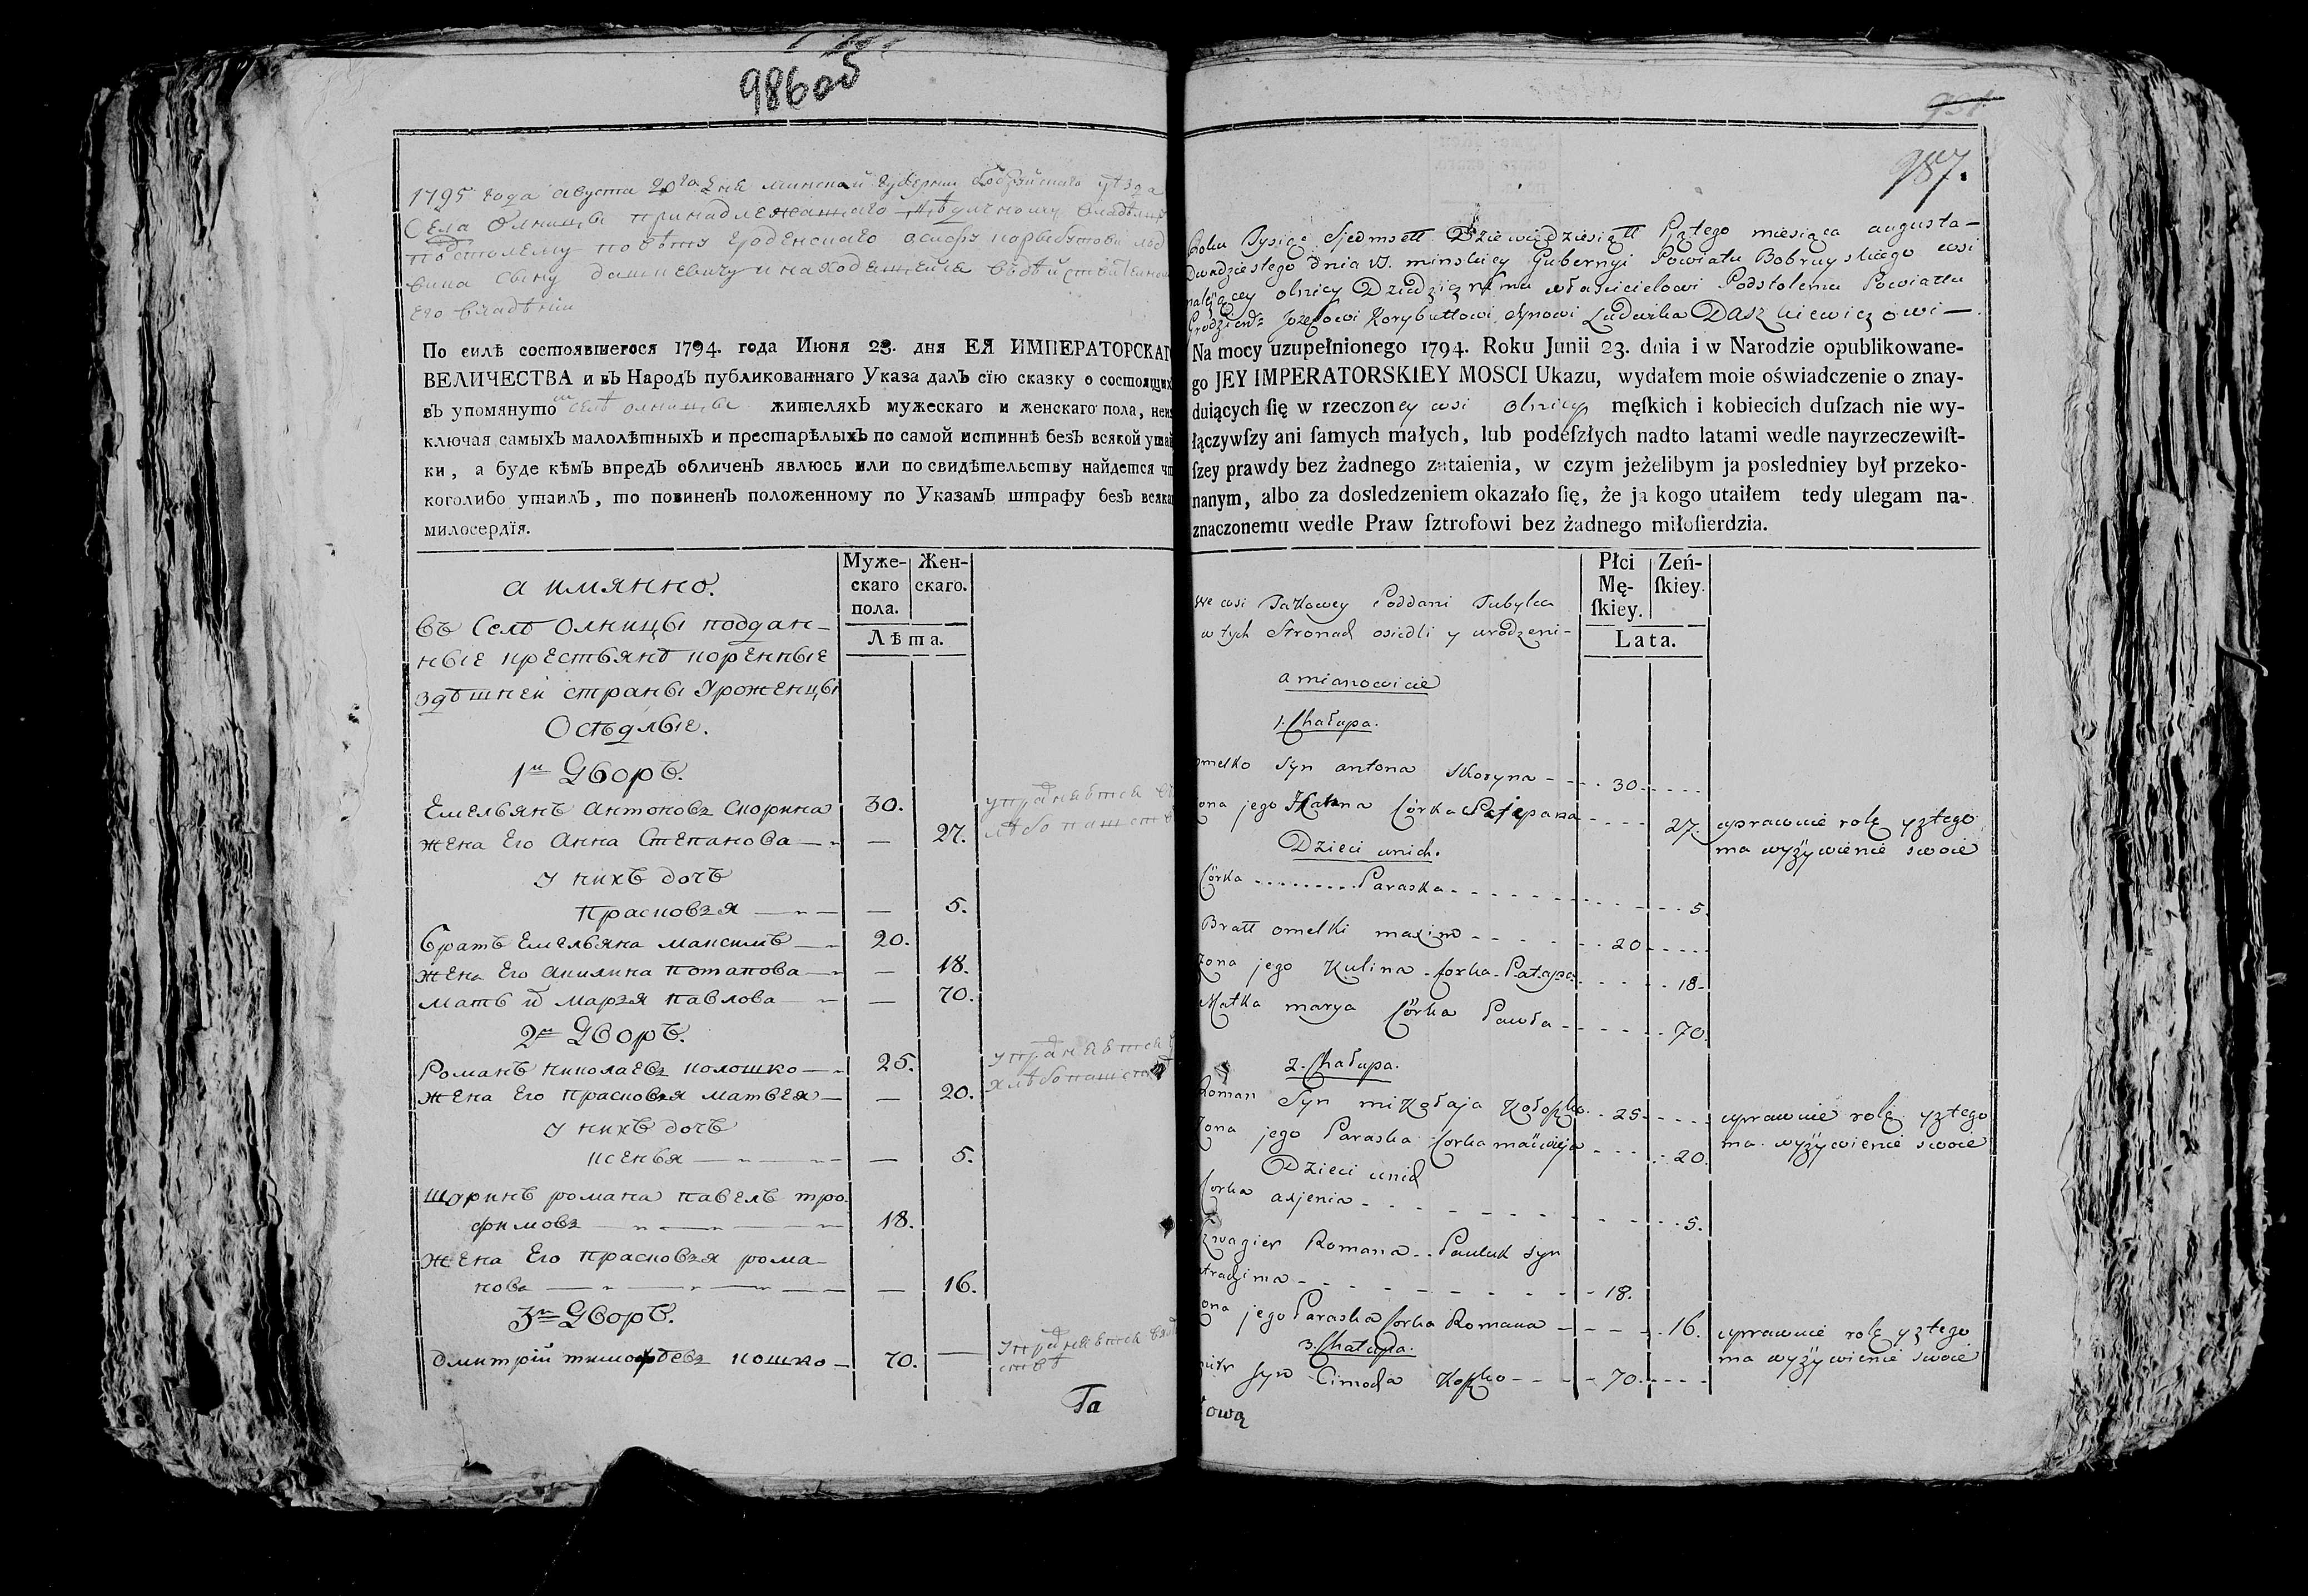 986об
1795 года августа 20го дня минской губернии бобруйского уезда
Села Олницы принадлежащаго владельцу
подстолему повета гроденскаго осипу корыбутови люд
вика сыну дашкевичу и находящейся въ
его владѣнии
По силѣ состоявшегося 1794. года Июня 23. дня ЕЯ ИМПЕРАТОРСКАГ
ВЕЛИЧЕСТВА и въ Народъ публикованнаго Указа далъ сїю сказку о состоящих
въ упомянутом селѣ олницы жителяхъ мужескаго и женскаго пола, неис
ключая самыхъ малолѣтныхъ и престарѣлыхъ по самой истиннѣ безъ всякой утай
ки, а буде кѣмъ впредъ обличенъ явлюсь или по свидѣтельству найдется чт
коголибо утаилъ, то повиненъ положенному по Указамъ штрафу безъ всяка
милосердїя.
Муже-
скаго
пола.
Жен-
скаго.
Лѣта.
а имянно.
въ Селѣ Олницы поддан-
ные крестьянѣ коренные
здѣшней страны Уроженцы
Осѣдлые.
1й Дворъ.
Емельянъ Антоновъ Скорина 30.
жена Его Анна Степанова — — 27.
упражняется въ
хлѣбопашеств
У нихъ дочь
Прасковья — — 5.
братъ Емельяна максимъ — 20.
жена Его акилина потапова — — 18.
мать их марья павлова — — 70.
2й Дворъ.
Романъ николаевъ колошко — 25.
жена Его прасковья матвея — — 20.
упражняется
хлѣбопашеств
У нихъ дочь
ксенья — — 5.
шуринъ романа павелъ тро-
фимовъ — 18.
жена Его прасковья рома-
нова — — 16.
3й Дворъ.
дмитрїй тимофѣевъ кошко — 70. —
упражняется
Та
987.
Roku Tysiąc Sjedmsett Dziewiędziesiątt Piątego miesiąca augusta —
Dwadziestego dnia V.S. minskiey Gubernyi Powiatu Bobruyskiego wsi
nalężącey olnicy Dziedzicznemu właścicielowi Podstolemu Powiattu
Grodzień: Jozefowi Korybuttowi Synowi Ludwika Daszkiewiczowi —
Na mocy uzupełnionego 1794. Roku Junii 23. dnia i w Narodzie opublikowane-
go JEY IMPERATORSKIEY MOSCI Ukazu, wydałem moie oświadczenie o znay-
duiących ſię w rzeczoney wsi olnicy męſkich i kobiecich duſzach nie wy-
łączywſzy ani ſamych małych, lub podéſzłych nadto latami wedle nayrzeczewiſt-
ſzey prawdy bez żadnego zataienia, w czym jeżelibym ja posledniey był przeko-
nanym, albo za dosledzeniem okazało ſię, że ja kogo utaiłem tedy ulegam na-
znaczonemu wedle Praw ſztrofowi bez żadnego miłoſierdzia.
Płci
Mę-
ſkiey.
Zeń-
ſkiey.
Lata.
We wsi Takowey Poddani Tubylcu
w tych Stronach osiedli y urodzeni-
a mianowicie
1. Chałupa.
omelko Syn antona Skoryna - - 30.
ona jego Hanna Córka Sciepana - - - 27. uprawuie rolę y z tego
ma wyżywienie swoie
Dzieci unich.
Córka - - - Paraska - - - 5.
Bratt omelki maxim - - - 20
zona jego Kulina Corka Patapa - - - 18.
Matka marya Córka Pawła - - - 70
2. Chałupa.
Roman Syn mikołaja Kołoszko - 25. - - - uprawuie rolę y z tego
zona jego Paraska Corka maciwieja - - - 20. ma wyżywienie swoie
Dzieci unich
Corka axjenia - - - 5.
Szwagier Romana - - Pauluk syn
trachima - - - 18.
ona jego Paraska Corka Romana - - - 16. uprawuie rolę y z tego
ma wyżywienie swoie
3. Chałupa.
Syn Cimocha Koszko - - - 70. - - -
łową